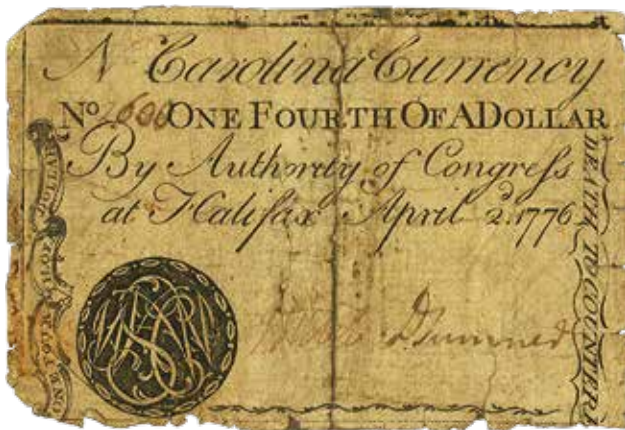 N Carolina Currency
No 2600 ONE FOURTH OF A DOLLAR
By Authority of Congress
at Halifax April 2d. 1776
DEATH TO COUNTERF
DOLLAR
ONE FOURTH